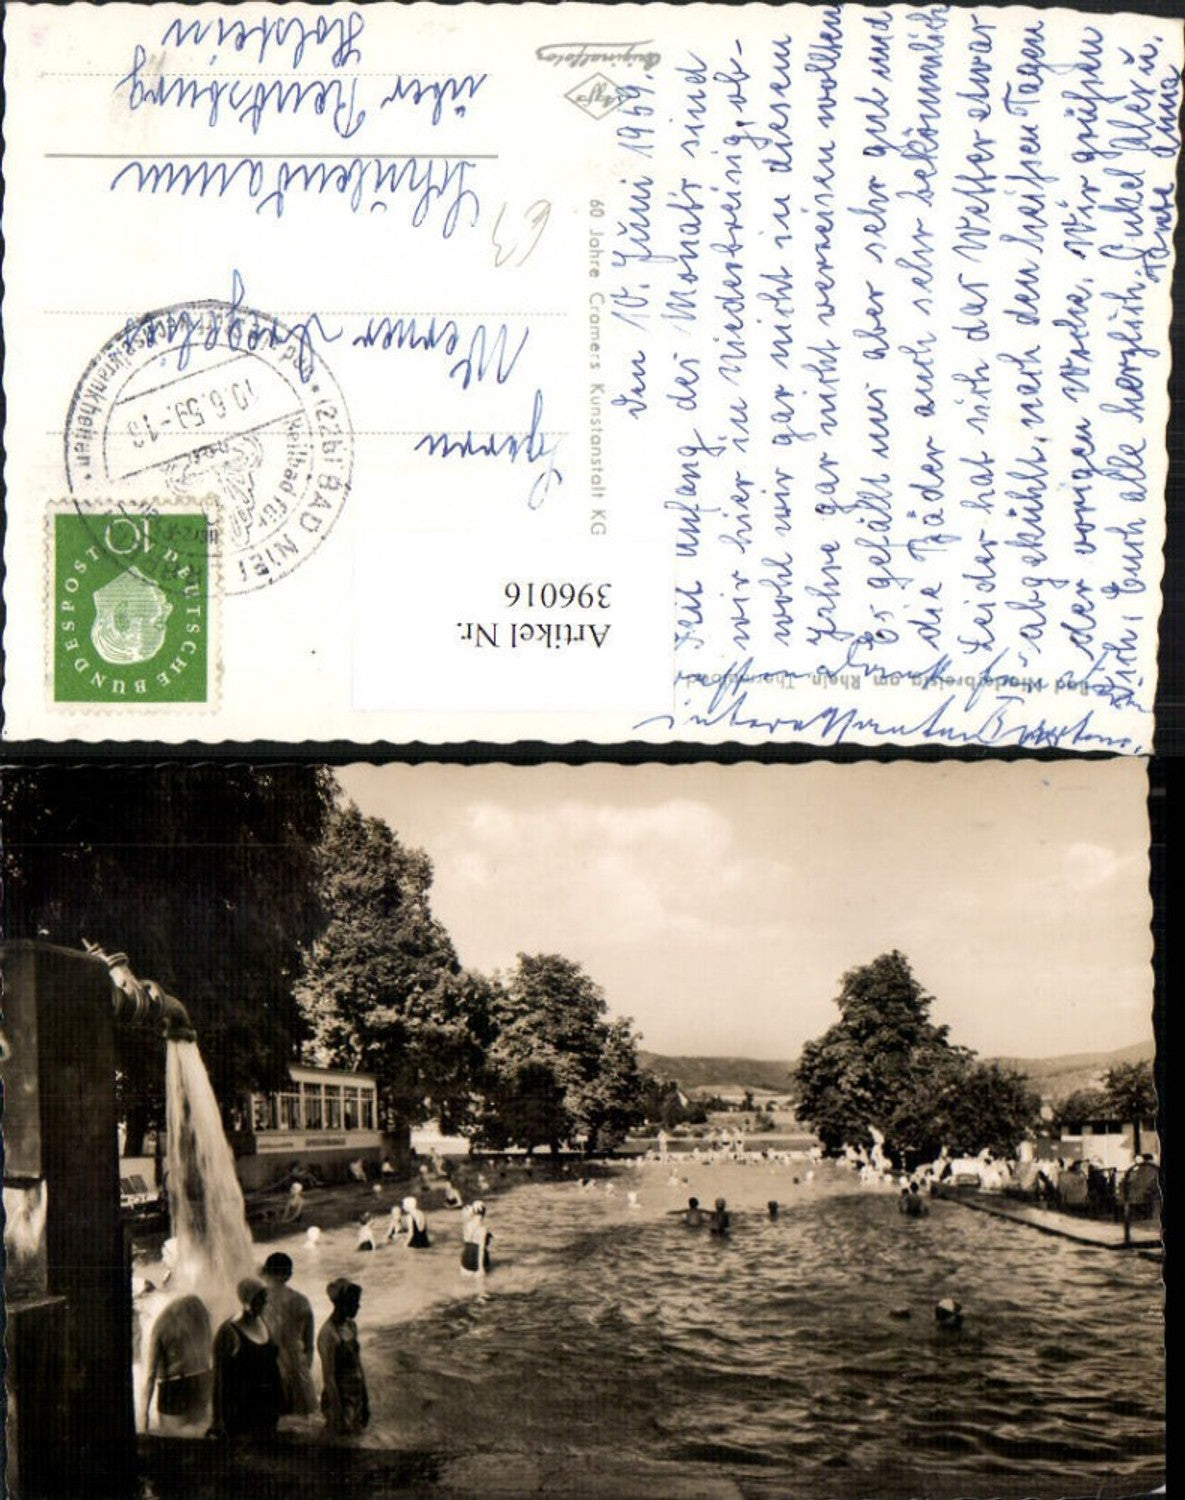 den 10. Juni 1959.
Seit anfang des Monats sind
wir hier in Niederbreisig, ob-
wohl wir gar nicht in diesem
Jahre gar nicht verreisen wollten
Es gefällt uns aber sehr gut und
die Bäder auch sehr bekömmlich
Leider hat sich das Wetter etwas
abgekühlt, nach den heißen Tagen
der vorigen Woche. Wir grüßen
Dich, Euch alle herzlich. Onkel Alex u.
Tante Anna
interessanten Karten.
Herrn
Werner
Schülldamm
über Rendsburg
Holstein
63
Agfa
Originalfoto
60 Jahre Cramers Kunstanstalt KG
Bad Niederbreisig am Rhein, Thermalbad
Artikel Nr.
396016
(22b) BAD NIEDER
Heilbad für
Herz-
10.6.59-13
DEUTSCHE BUNDESPOST
10